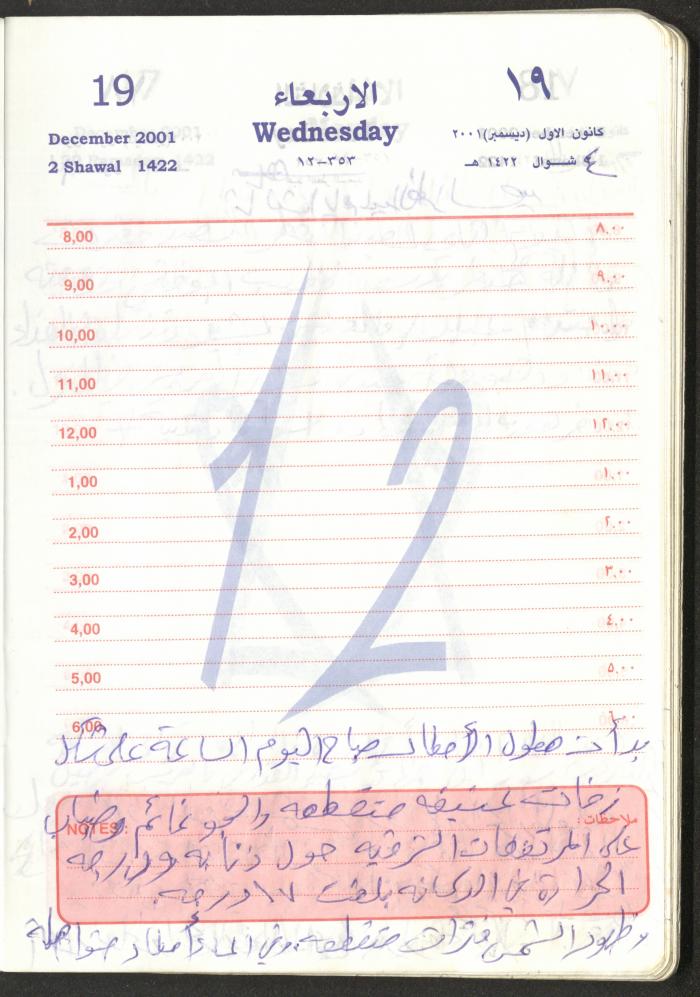 19
الاربعاء
١٩
December 2001
Wednesday
كانون الاول (ديسمبر) ٢٠٠١
2 Shawal 1422
٣٥٣-١٢
٤ شوال ١٤٢٢ هـ
8,00 ٨,٠٠
9,00 ٩,٠٠
10,00 ١٠,٠٠
11,00 ١١,٠٠
12,00 ١٢,٠٠
1,00 ١,٠٠
2,00 ٢,٠٠
3,00 ٣,٠٠
4,00 ٤,٠٠
5,00 ٥,٠٠
6,00 ٦,٠٠
12
بدأت هطول الأمطار صباح اليوم الساعة على شكل
زخات عنيفه متقطعه والجو غائم وضباب
NOTES: ملاحظات:
على المرتفعات الشرقيه حول ودرجه
الحرارة في بلغت ١٧ درجه.
وظهور الشمس فترات متقطعه وفي المساء أمطار متواصلة